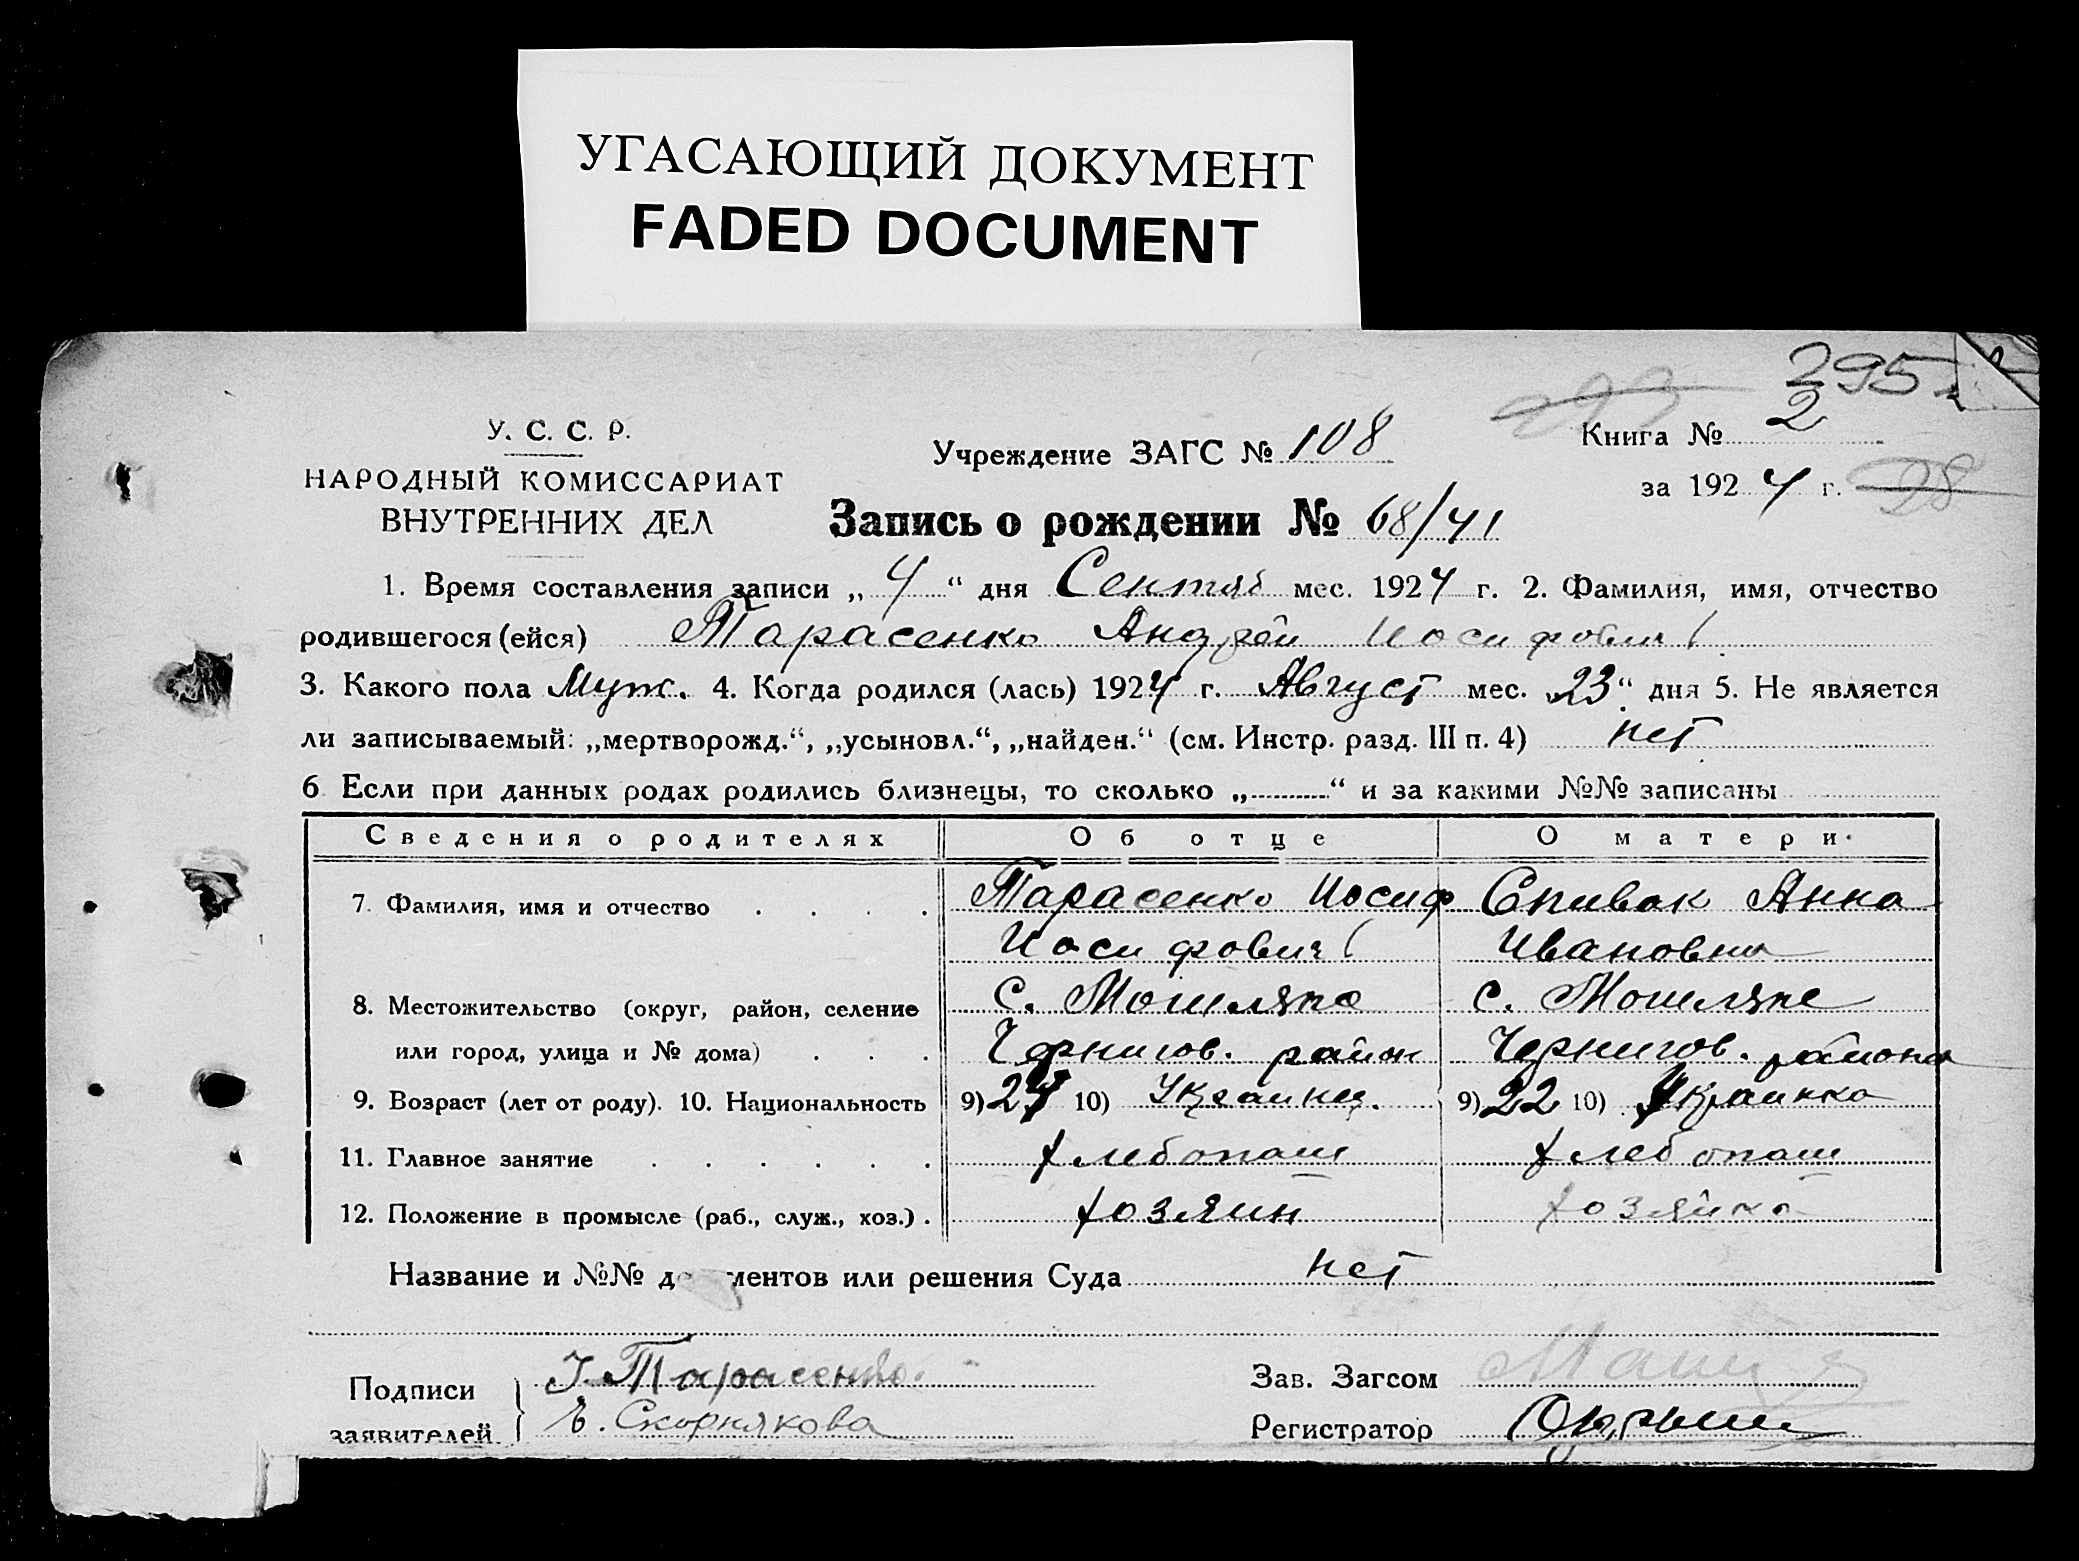 УГАСАЮЩИЙ ДОКУМЕНТ
FADED DOCUMENT
295
У. С. С. Р.
НАРОДНЫЙ КОМИССАРИАТ
ВНУТРЕННИХ ДЕЛ
Учреждение ЗАГС № 108
Книга № 2
за 1924 г. 28
Запись о рождении № 68/41
1. Время составления записи „ 4 “ дня Сентяб мес. 1924 г. 2. Фамилия, имя, отчество
родившегося (ейся) Тарасенко Андрей Иосифович
3. Какого пола Муж. 4. Когда родился (лась) 1924 г. Август мес. „23“ дня 5. Не является
ли записываемый: „мертворожд.“, „усыновл.“, „найден.“ (см. Инстр. разд. III п. 4) нет
6 Если при данных родах родились близнецы, то сколько „..........“ и за какими №№ записаны
Сведения о родителях Об отце О матери
7. Фамилия, имя и отчество Тарасенко Иосиф Спивак Анна
Иосифович Ивановна
8. Местожительство (округ, район, селение С. С.
или город, улица и № дома) Чернигов. район Чернигов. района
9. Возраст (лет от роду). 10. Национальность 9) 24 10) Украинец. 9) 22 10) Украинка
11. Главное занятие хлебопаш хлебопаш
12. Положение в промысле (раб., служ., хоз.) хозяин хозяйка
Название и №№ д ментов или решения Суда нет
Подписи заявителей
І. Тарасенко
Е. Скорнякова
Зав. Загсом
Регистратор